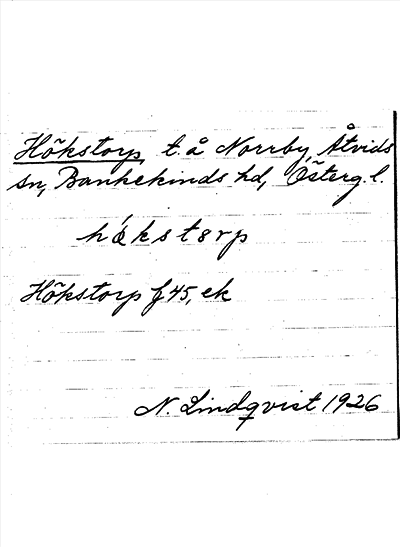 Hökstorp, t. å Norrby, Åtvids
sn, Bankekinds hd, Österg. l.
hǿkstɘrp
Hökstorp J 45, ek
N. Lindqvist 1926